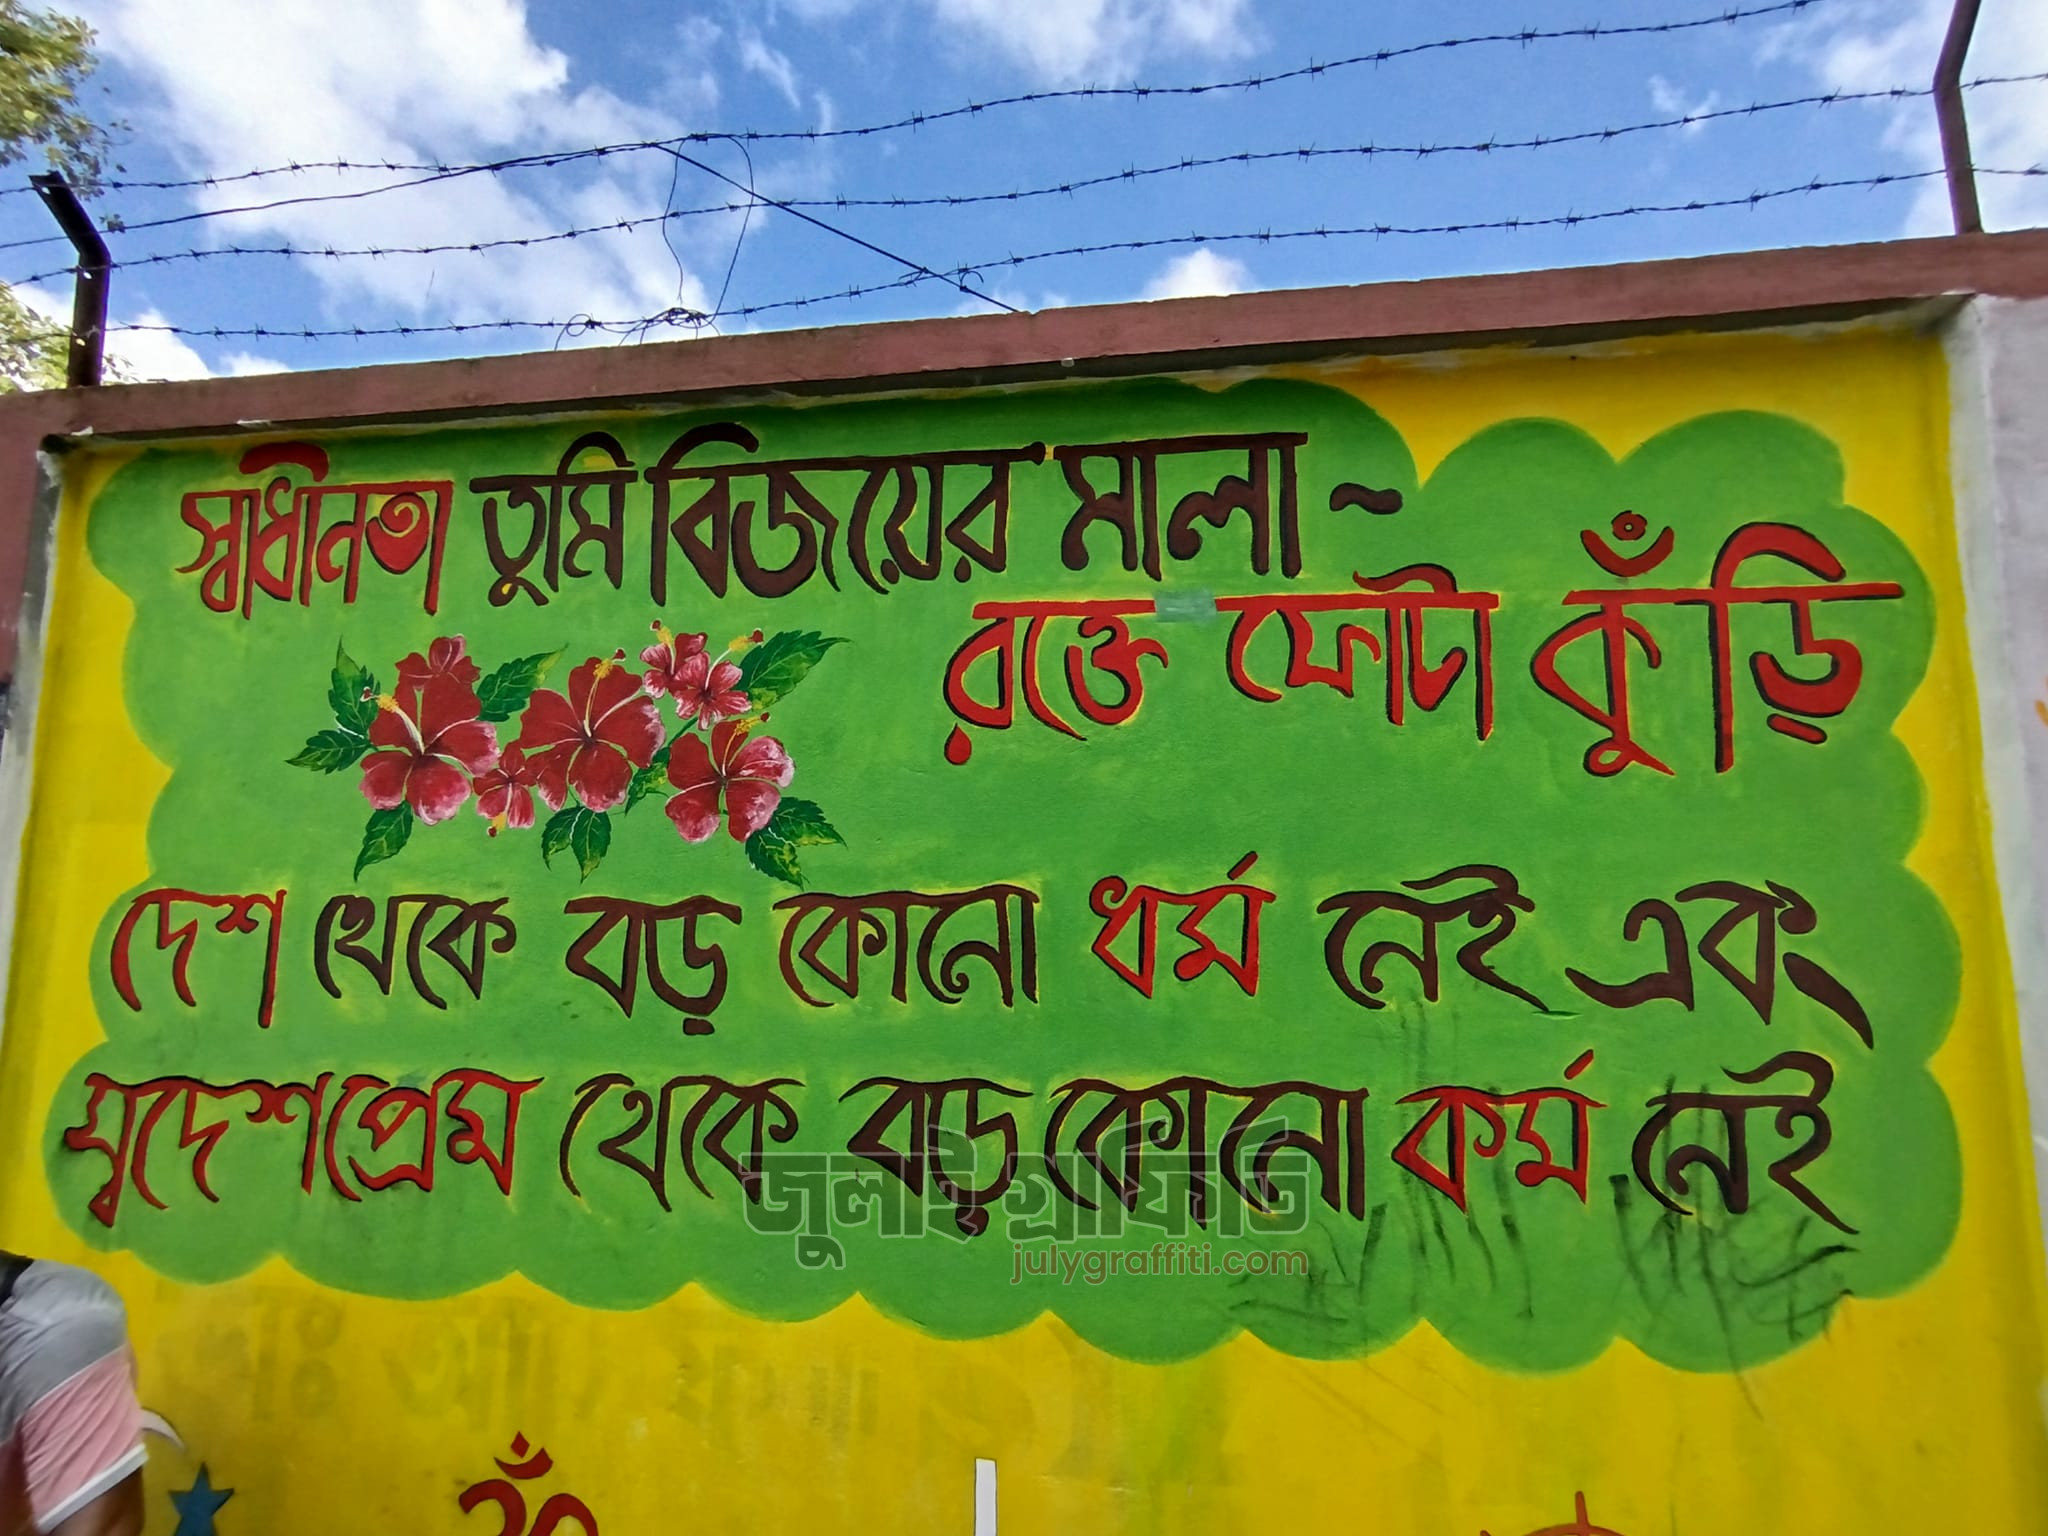 স্বাধীনতা তুমি বিজয়ের মালা ~
রক্তে ফোটা কুঁড়ি
দেশ থেকে বড় কোনো ধর্ম নেই এবং
স্বদেশপ্রেম থেকে বড় কোনো কর্ম নেই
জুলাই গ্রাফিতি
julygraffiti.com
ॐ